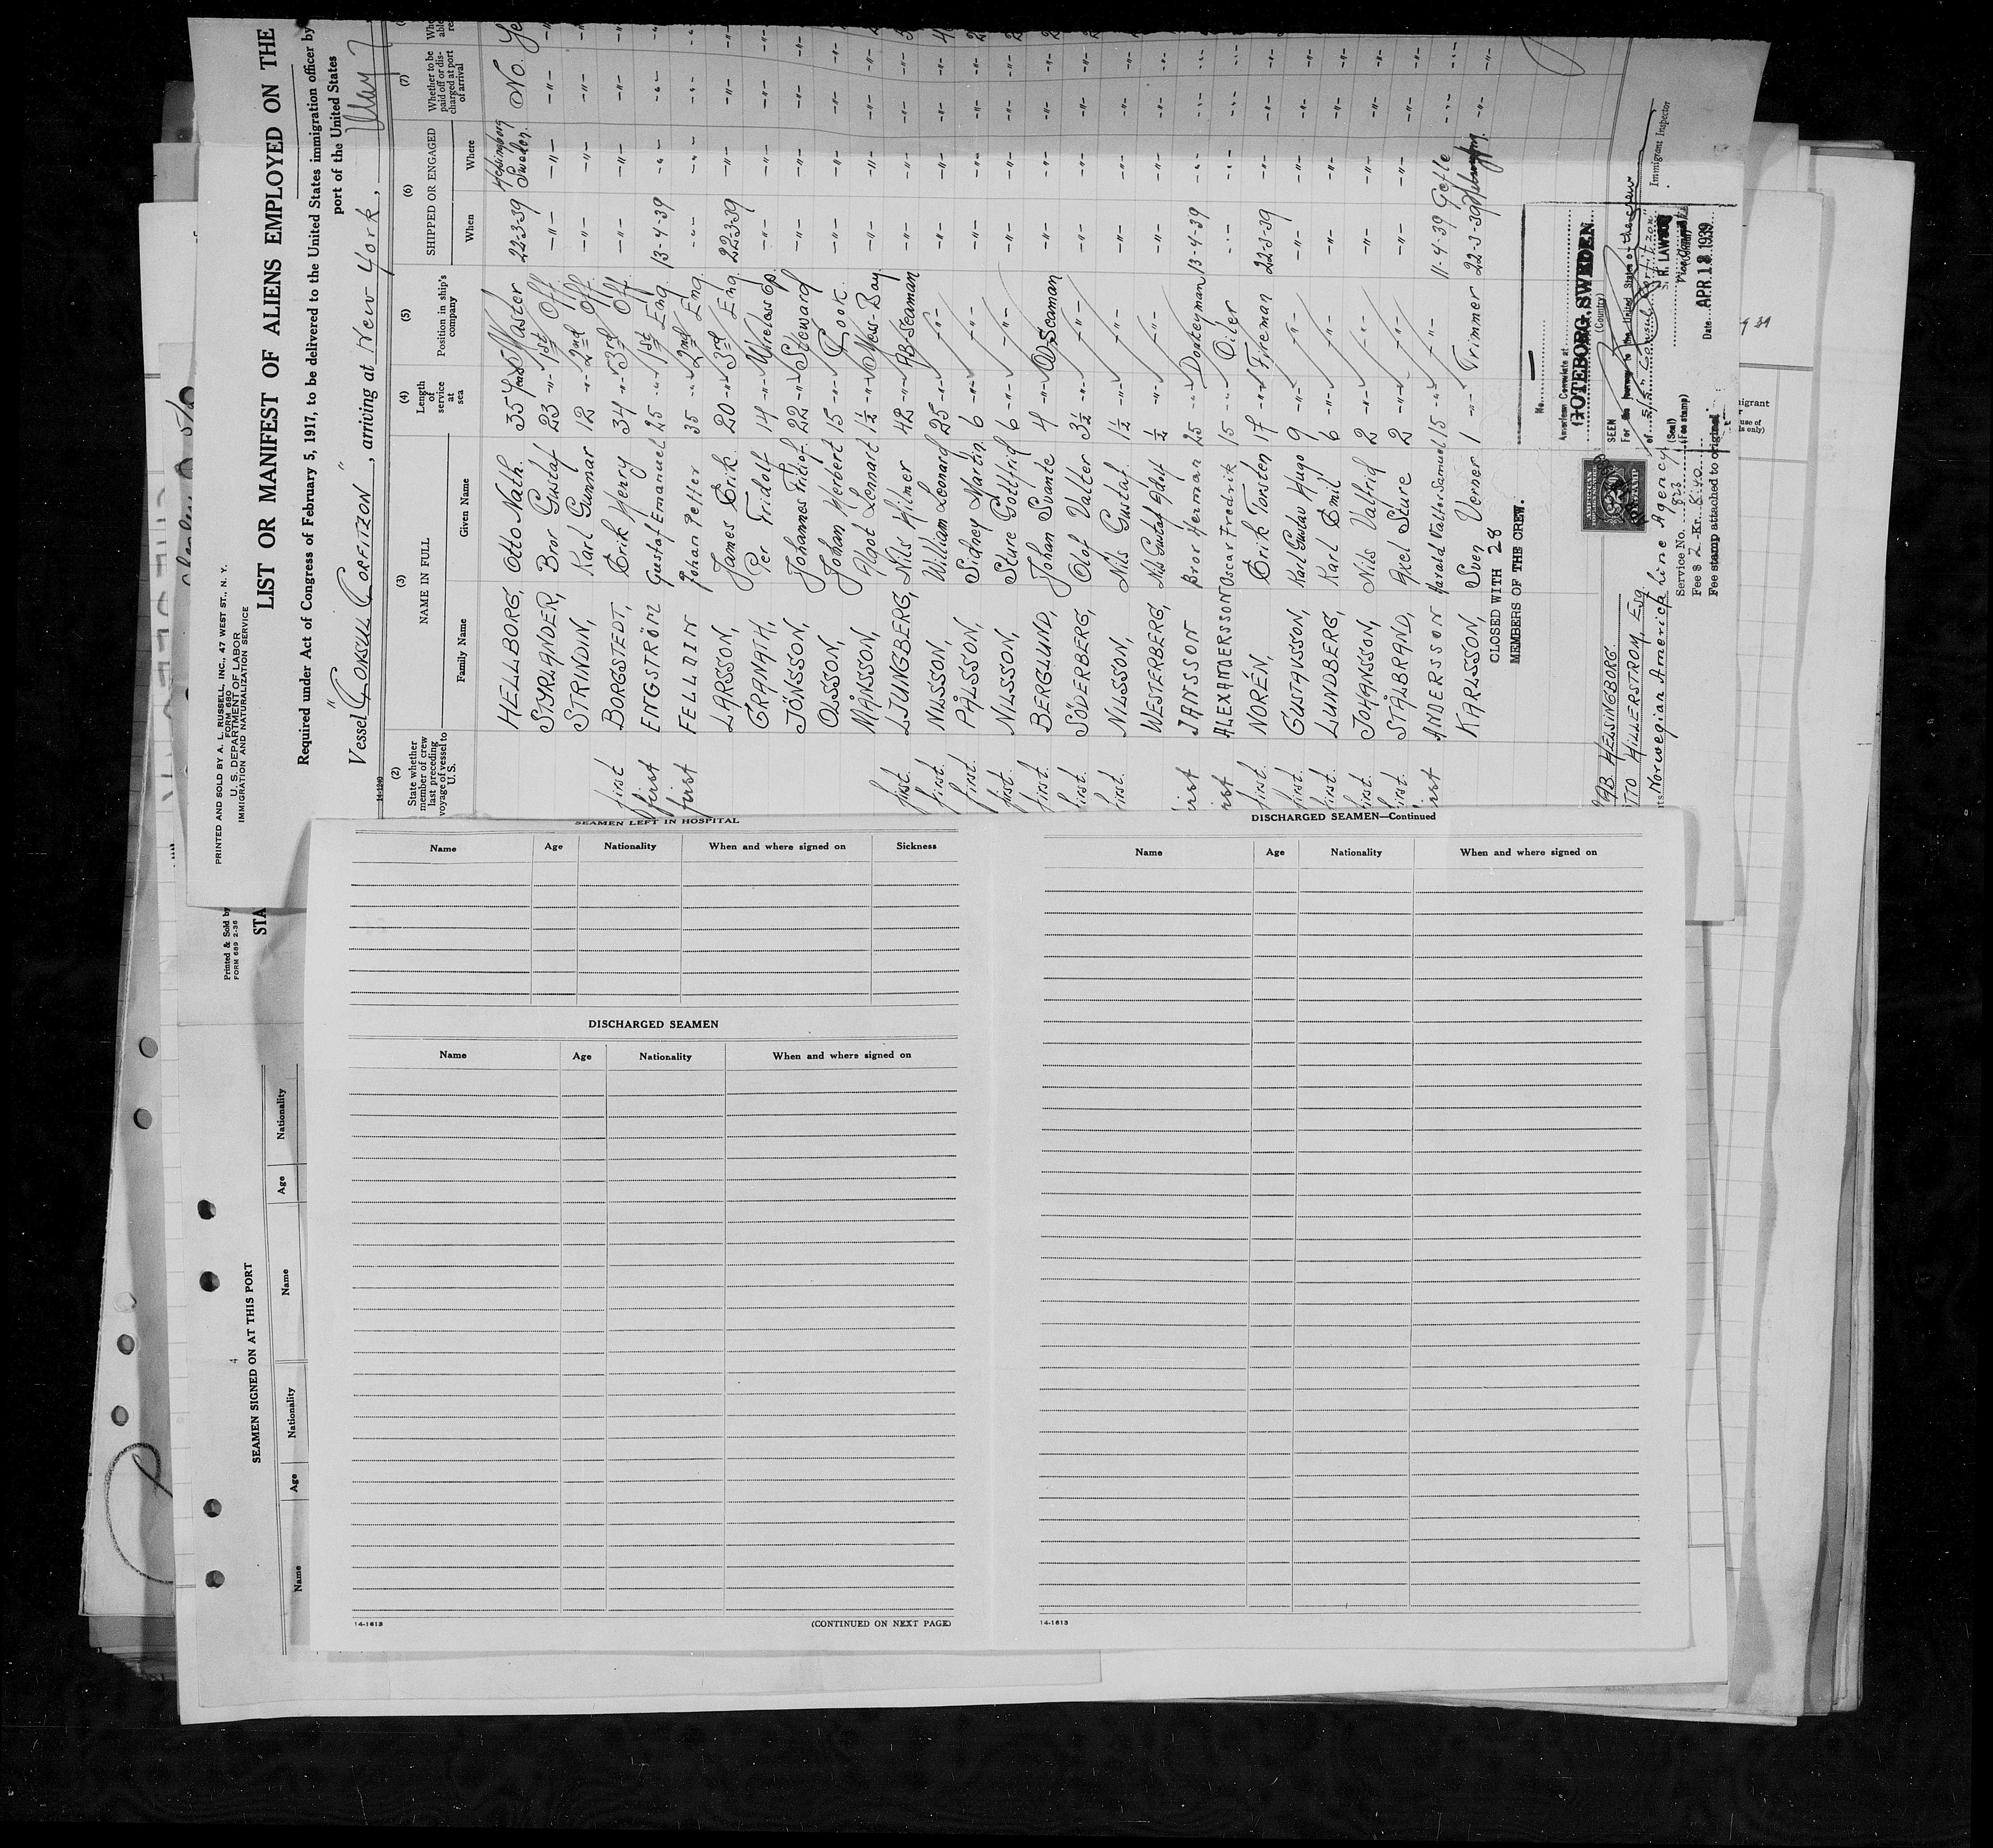 PRINTED AND SOLD BY A. L. RUSSELL, INC., 47 WEST ST., N. Y.
FORM 680
U. S. DEPARTMENT OF LABOR
IMMIGRATION AND NATURALIZATION SERVICE
LIST OR MANIFEST OF ALIENS EMPLOYED ON THE
Required under Act of Congress of February 5, 1917, to be delivered to the United States immigration officer by
port of the United States
Vessel "CONSUL CORFITZON", arriving at New-York,
14-1240
(2) (3) (4) (5) (6) (7)
State whether member of crew last preceding voyage of vessel to U. S.
NAME IN FULL
Family Name Given Name
Length of service at sea
Position in ship's company
SHIPPED OR ENGAGED
When Where
Whether to be paid off or discharged at port of arrival
HELLBORG, Otto Nath. 35 years Master 22-3-39 Helsingborg Sweden. No.
STYRLANDER, Bror Gustaf 23 -"- 1st Off -"- -"- -"-
STRINDIN, Karl Gunnar 12 -"- 2nd Off. -"- -"- -"-
first BORGSTEDT, Erik Henry 34 -"- 3rd Off. -"- -"- -"-
first ENGSTRÖM Gustaf Emanuel 25 -"- 1st Eng 13-4-39 -"- -"-
first FELLDIN Johan Petter 35 -"- 2nd Eng. -"- -"- -"-
LARSSON, James Erik. 20 -"- 3rd Eng 22-3-39 -"- -"-
GRANATH, Per Fridolf 14 -"- Wireless Op. -"- -"- -"-
JÖNSSON, Johannes Fritiof. 22 -"- Steward -"- -"- -"-
OLSSON, Johan Herbert 15 -"- Cook. -"- -"- -"-
MÅNSSON, Algot Lennart 1½ -"- Mess-Boy -"- -"- -"-
first. LJUNGBERG, Nils Hilmer 42 -"- AB-Seaman -"- -"- -"-
first. NILSSON, William Leonard 25 -"- -"- -"- -"- -"-
first. PÅLSSON, Sidney Martin. 6 -"- -"- -"- -"- -"-
first. NILSSON, Sture Gottfrid 6 -"- -"- -"- -"- -"-
first. BERGLUND, Johan Svante 4 -"- O/Seaman -"- -"- -"-
first. SÖDERBERG, Olof Valter 3½ -"- -"- -"- -"- -"-
first. NILSSON, Nils Gustaf. 1½ -"- -"- -"- -"- -"-
WESTERBERG, Nils Gustaf ½ -"- -"- -"- -"- -"-
first JANSSON Bror Herman 25 -"- Donkeyman 13-4-39 -"- -"-
first ALEXANDERSSON Oscar Fredrik 15 -"- Oiler -"- -"- -"-
first. NORÉN, Erik Torsten 17 -"- Fireman 22-3-39 -"- -"-
first. GUSTAVSSON, Karl Gustav Hugo 9 -"- -"- -"- -"- -"-
first. LUNDBERG, Karl Emil 6 -"- -"- -"- -"- -"-
first. JOHANSSON, Nils Valfrid 2 -"- -"- -"- -"- -"-
first. STÅLBRAND, Axel Sture 2 -"- -"- -"- -"- -"-
first ANDERSSON Harald Valter Samuel 15 -"- -"- 11-4-39 Gefle -"-
KARLSSON, Sven Verner 1 -"- Trimmer 22-3-39 -"-
CLOSED WITH 28
MEMBERS OF THE CREW.
No.
American Consulate at
GOTEBORG, SWEDEN
(Country)
SEEN
For the journey to the United States
of
S. R. LAW
Date APR 13 1939
(Seal)
(Fee stamp)
Service No. 1823
Fee $ 2.-Kr.
Fee stamp attached to original
Immigrant Inspector
AB. HELSINGBORG.
OTTO HILLERSTROM, ESQ
Norwegian America Line Agency
Printed & Sold by
FORM 689 2-36
STA
4
SEAMEN SIGNED ON AT THIS PORT
Name Age Nationality Name Age Nationality
SEAMEN LEFT IN HOSPITAL
Name Age Nationality When and where signed on Sickness
DISCHARGED SEAMEN
Name Age Nationality When and where signed on
14-1613 (CONTINUED ON NEXT PAGE)
DISCHARGED SEAMEN—Continued
Name Age Nationality When and where signed on
14-1613